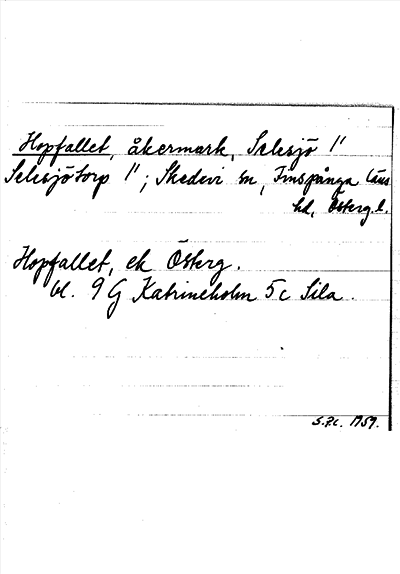 Hopfallet, åkermark, Selesjö 1/1
Selesjötorp 1/1; Skedevi sn, Finspånga läns
hd, Österg. l.
Hopfallet, ek Österg.
bl. 9 G Katrineholm 5 c Sila.
1959.